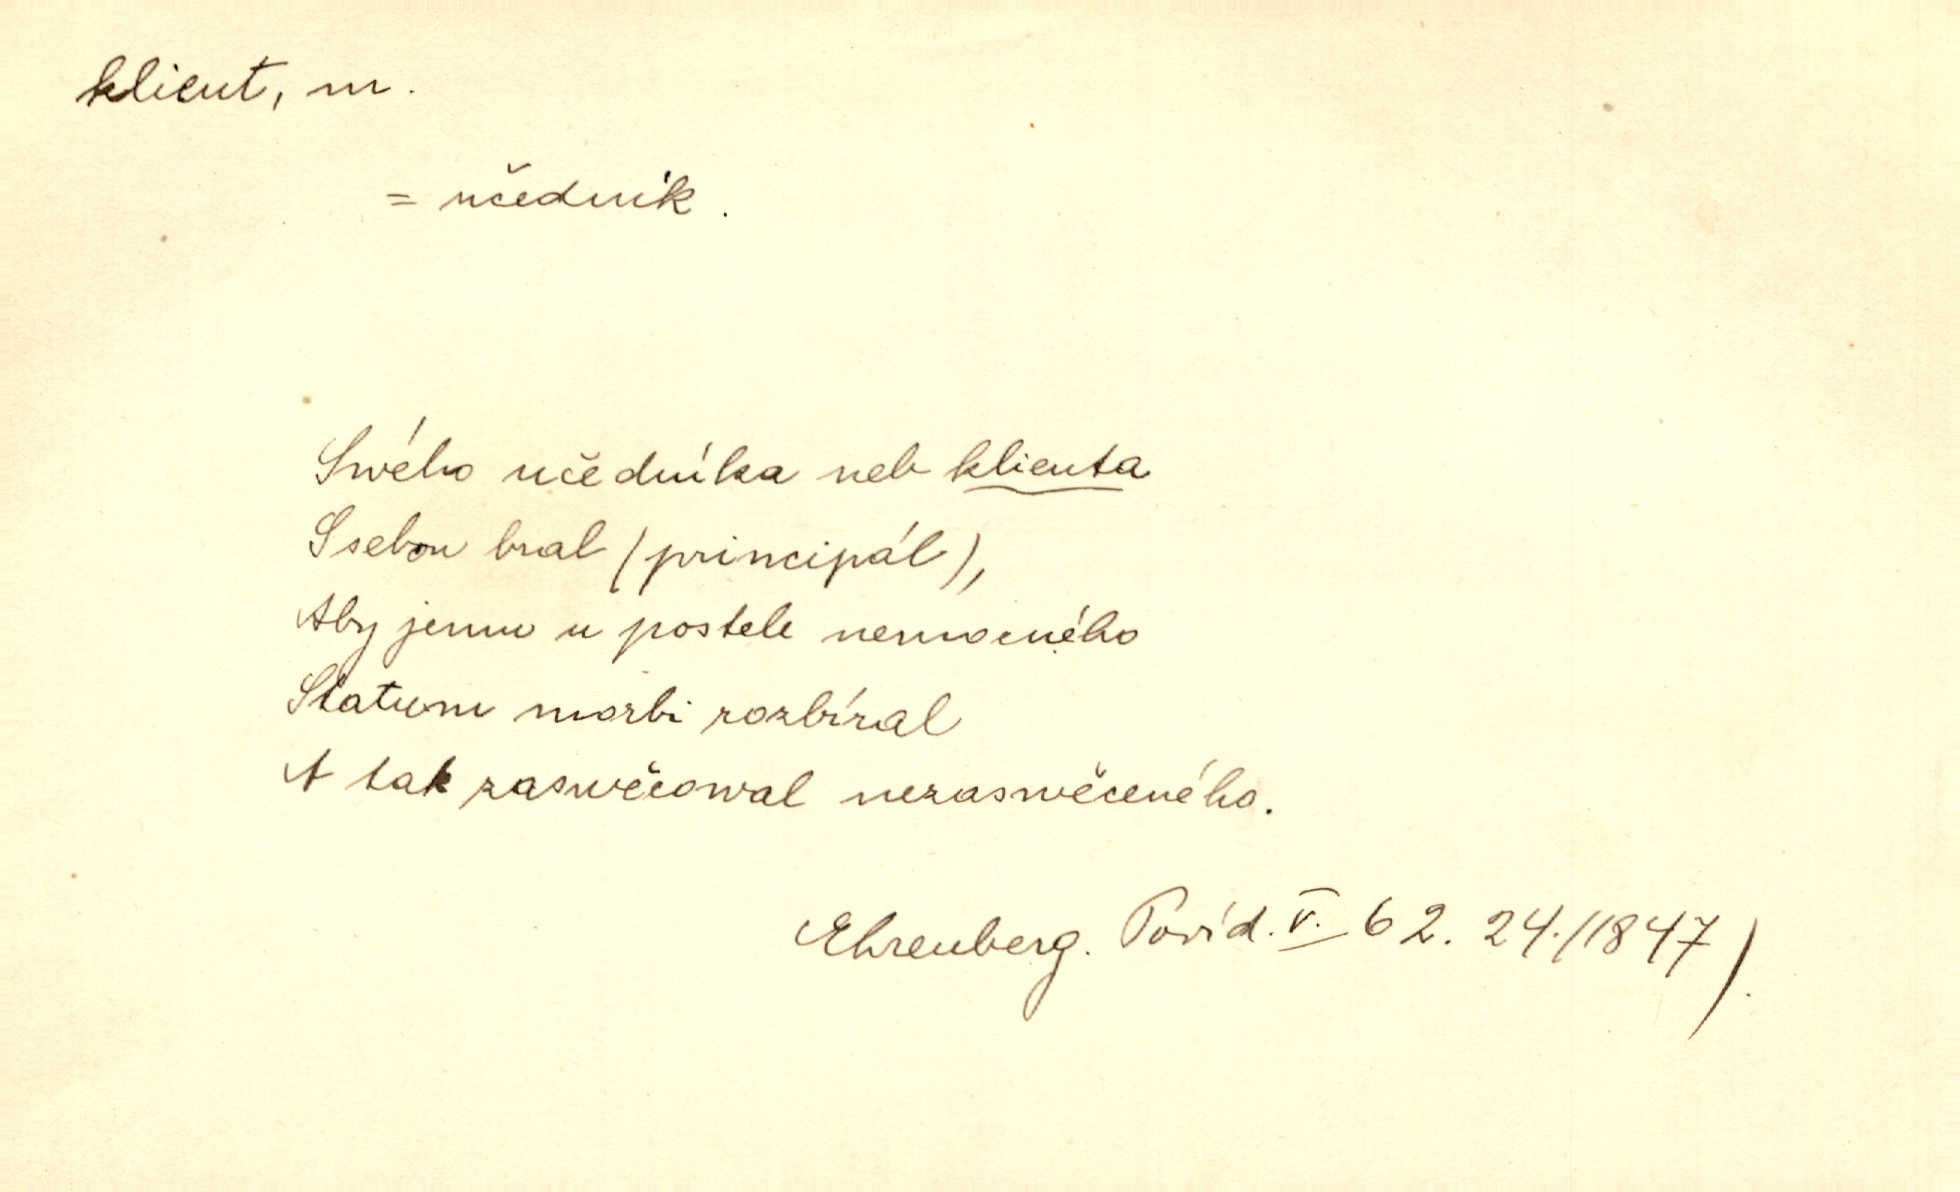 klient, m.
= učedník.
Swého učedníka neb klienta
S sebou bral (principál),
Aby jemu u postele nemocného
Statum morbi rozbíral
A tak zaswěcowal nezaswěceného.
Ehrenberg. Povíd. V. 62. 24. (1847).